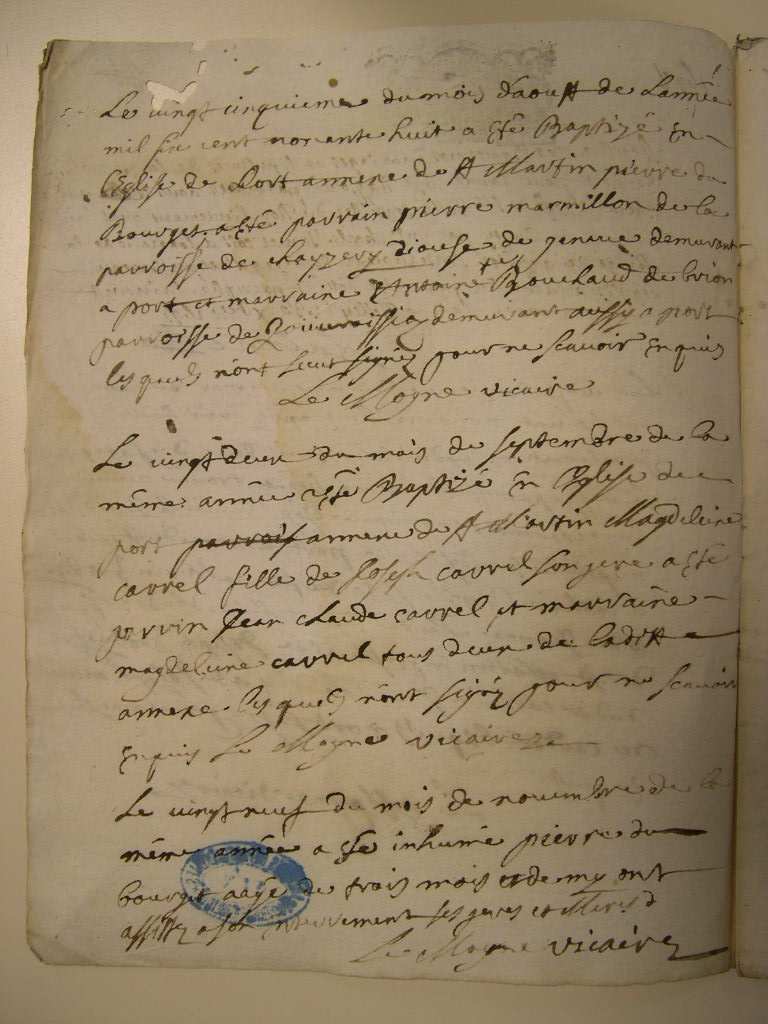 Le vingt cinquieme du mois d'aoust de L'année
mil six cent nonante huit a esté Baptizé En
L'Eglise de Port annexe de st Martin pierre du
Bourget a esté parrain pierre marmillon de la
parroisse de chayzery diocese de geneve demurant
a port et marraine Antoine Bouchaud de brion
parroisse de demurant aussy a port
lesquels n'ont sceut signé pour ne scavoir Enquis
Le Moyne vicaire
Le vingt deux du mois de septembre de la
même année a esté Baptizé En Eglise de
port parrois annexe de st Martin Magdeleine
cavrel fille de Joseph cavrel son pere a esté
parrin Jean claude cavrel et marraine
magdeleine cavrel tous deux de laditte
annexe lesquels n'ont signé pour ne scavoir
Enquis Le Moyne vicaire
Le vingt neuf du mois de novembre de la
même année a esté inhumé pierre du
bourget aagé de trois mois et demy ont
assistez a son enterrement ses peres et Meres
Le Moyne vicaire